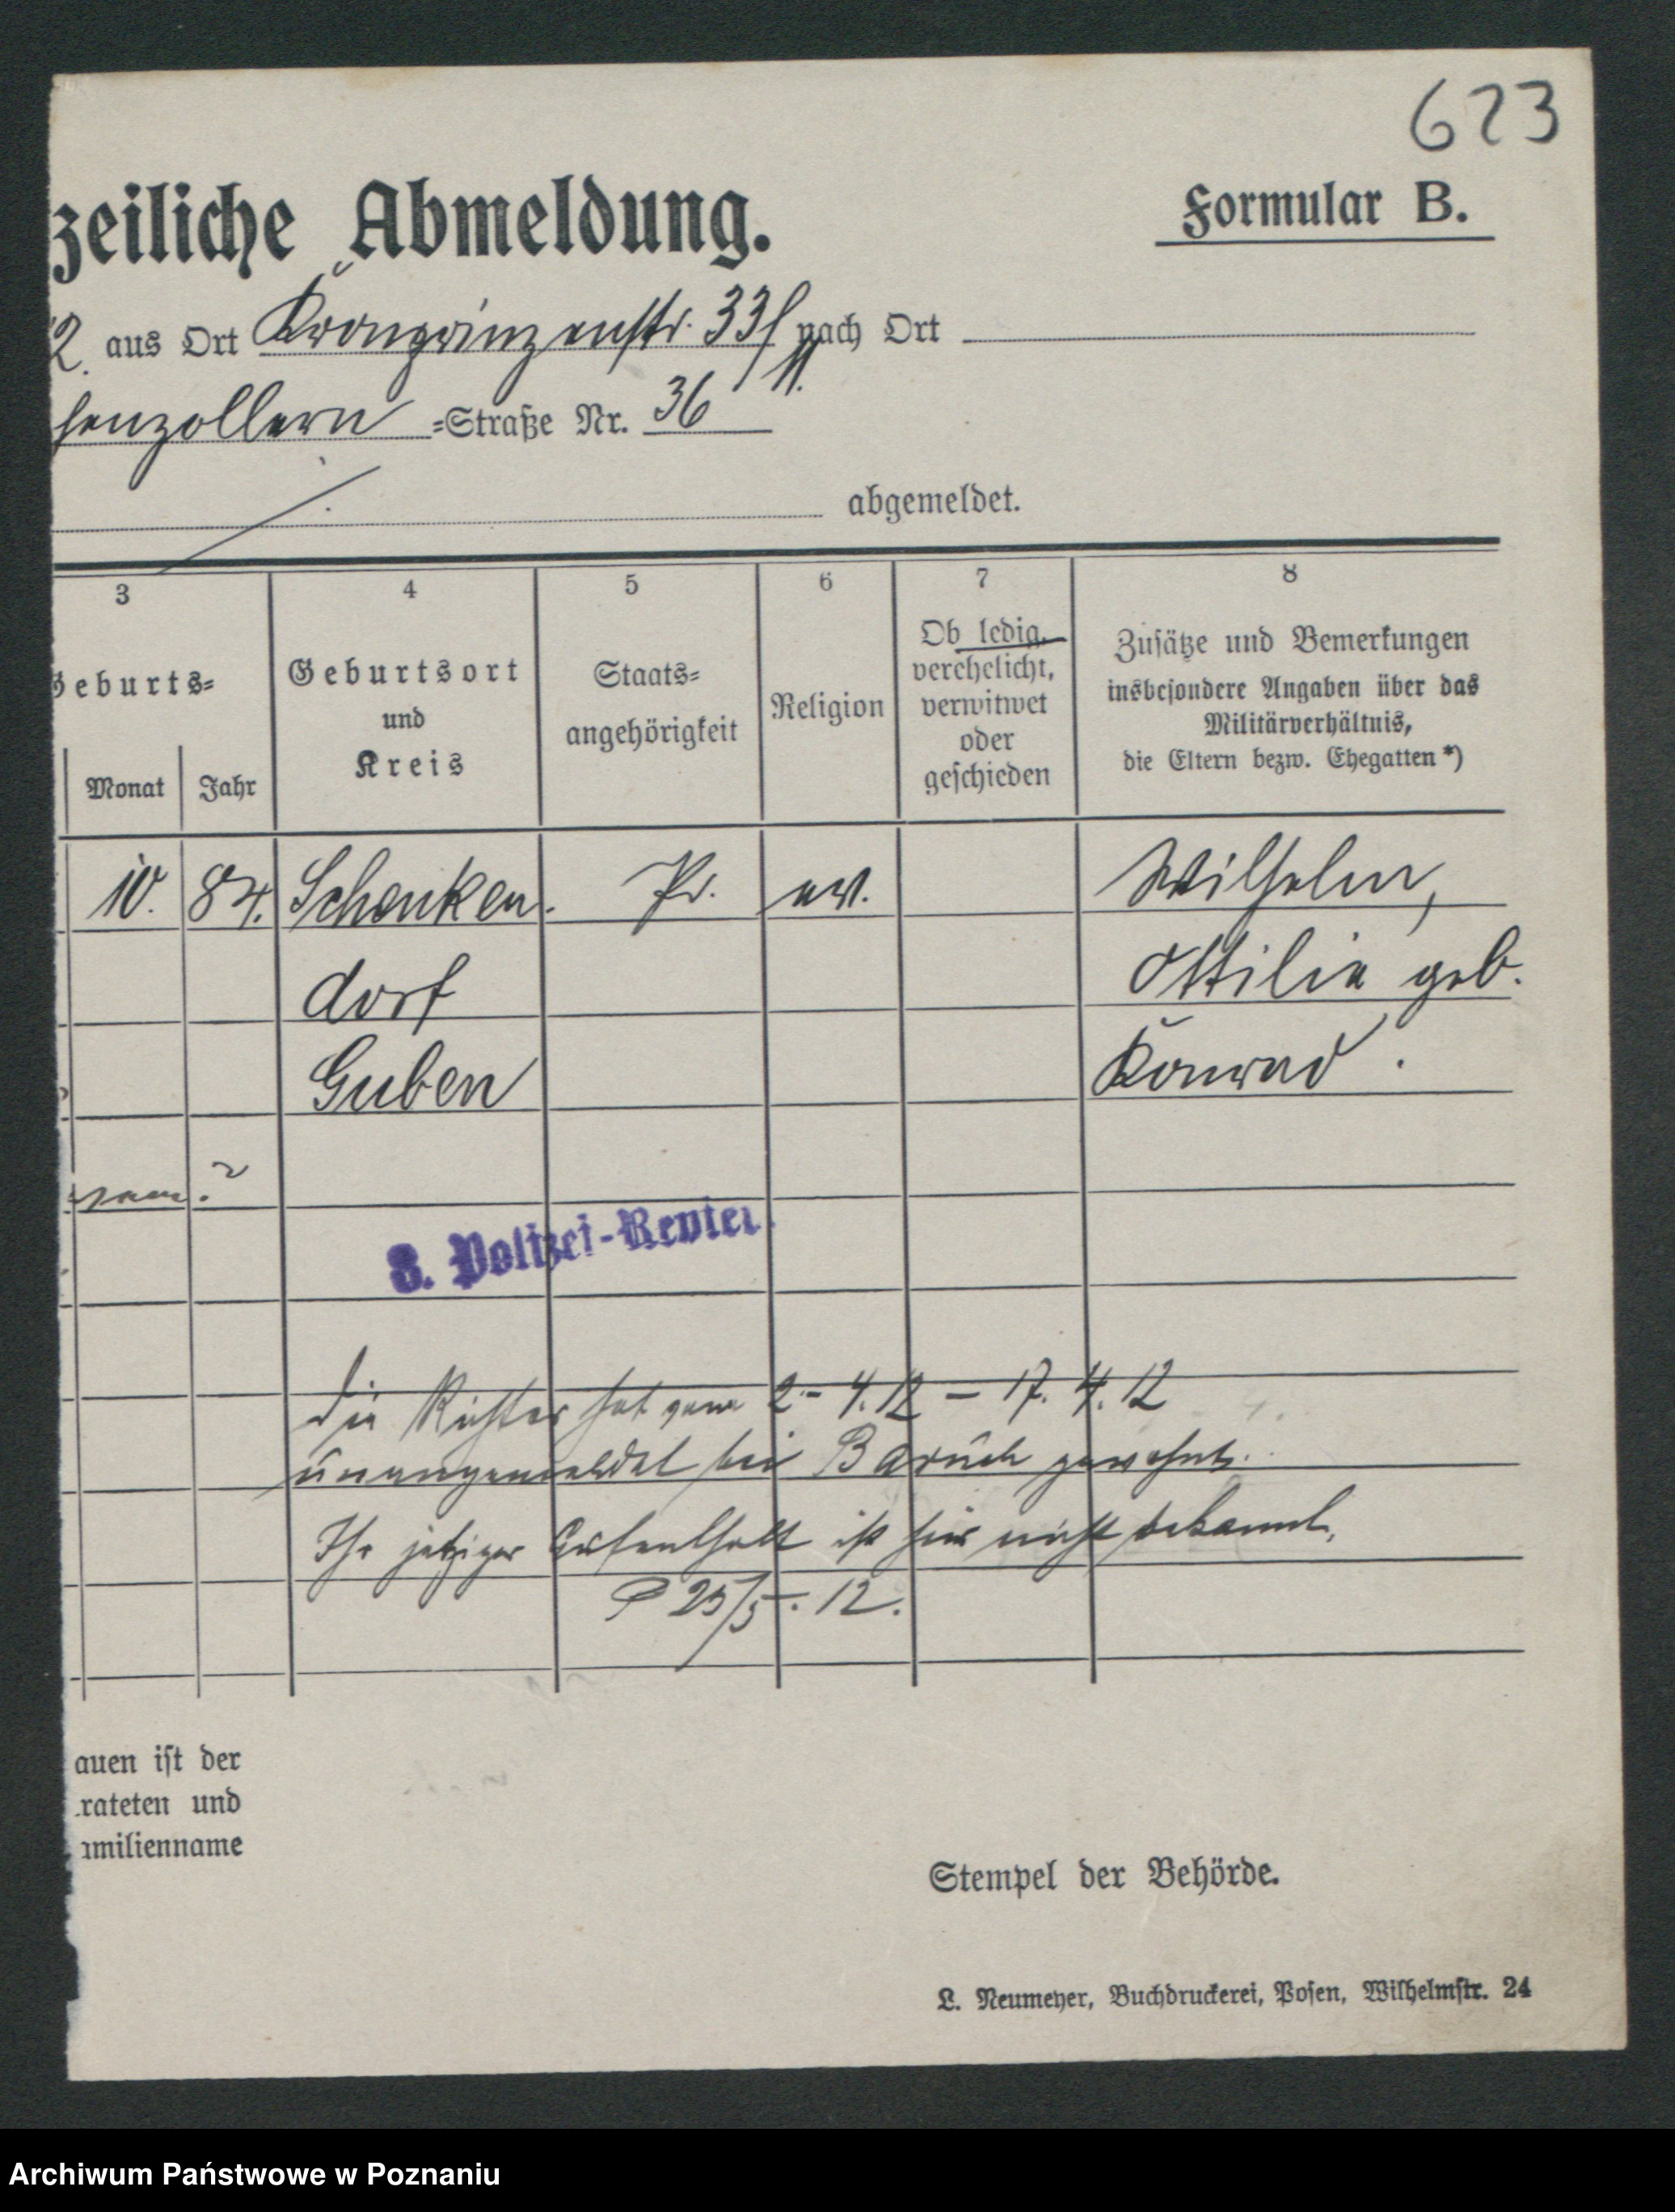 623
zeiliche Abmeldung.
Formular B.
2. aus Ort Kronprinzenstr. 33 nach Ort
henzollern =Straße Nr. 36
abgemeldet.
3 4 5 6 7 8
Geburts=
Monat Jahr
Geburtsort
und
Kreis
Staats=
angehörigkeit
Religion
Ob ledig,
verehelicht,
verwitwet
oder
geschieden
Zusätze und Bemerkungen
insbesondere Angaben über das
Militärverhältnis,
die Eltern bezw. Ehegatten *)
10. 84. Schenken. Pr. ev. Wilhelm,
dorf Ottilie geb.
Guben Konrad.
8. Polizei-Revier.
Die Richter hat vom 2.- 4.12 – 17. 4. 12
unangemeldet bei Baruch gewohnt.
Ihr jetziger Aufenthalt ist hier nicht bekannt.
25/5. 12.
auen ist der
rateten und
amilienname
Stempel der Behörde.
L. Neumeyer, Buchdruckerei, Posen, Wilhelmstr. 24
Archiwum Państwowe w Poznaniu